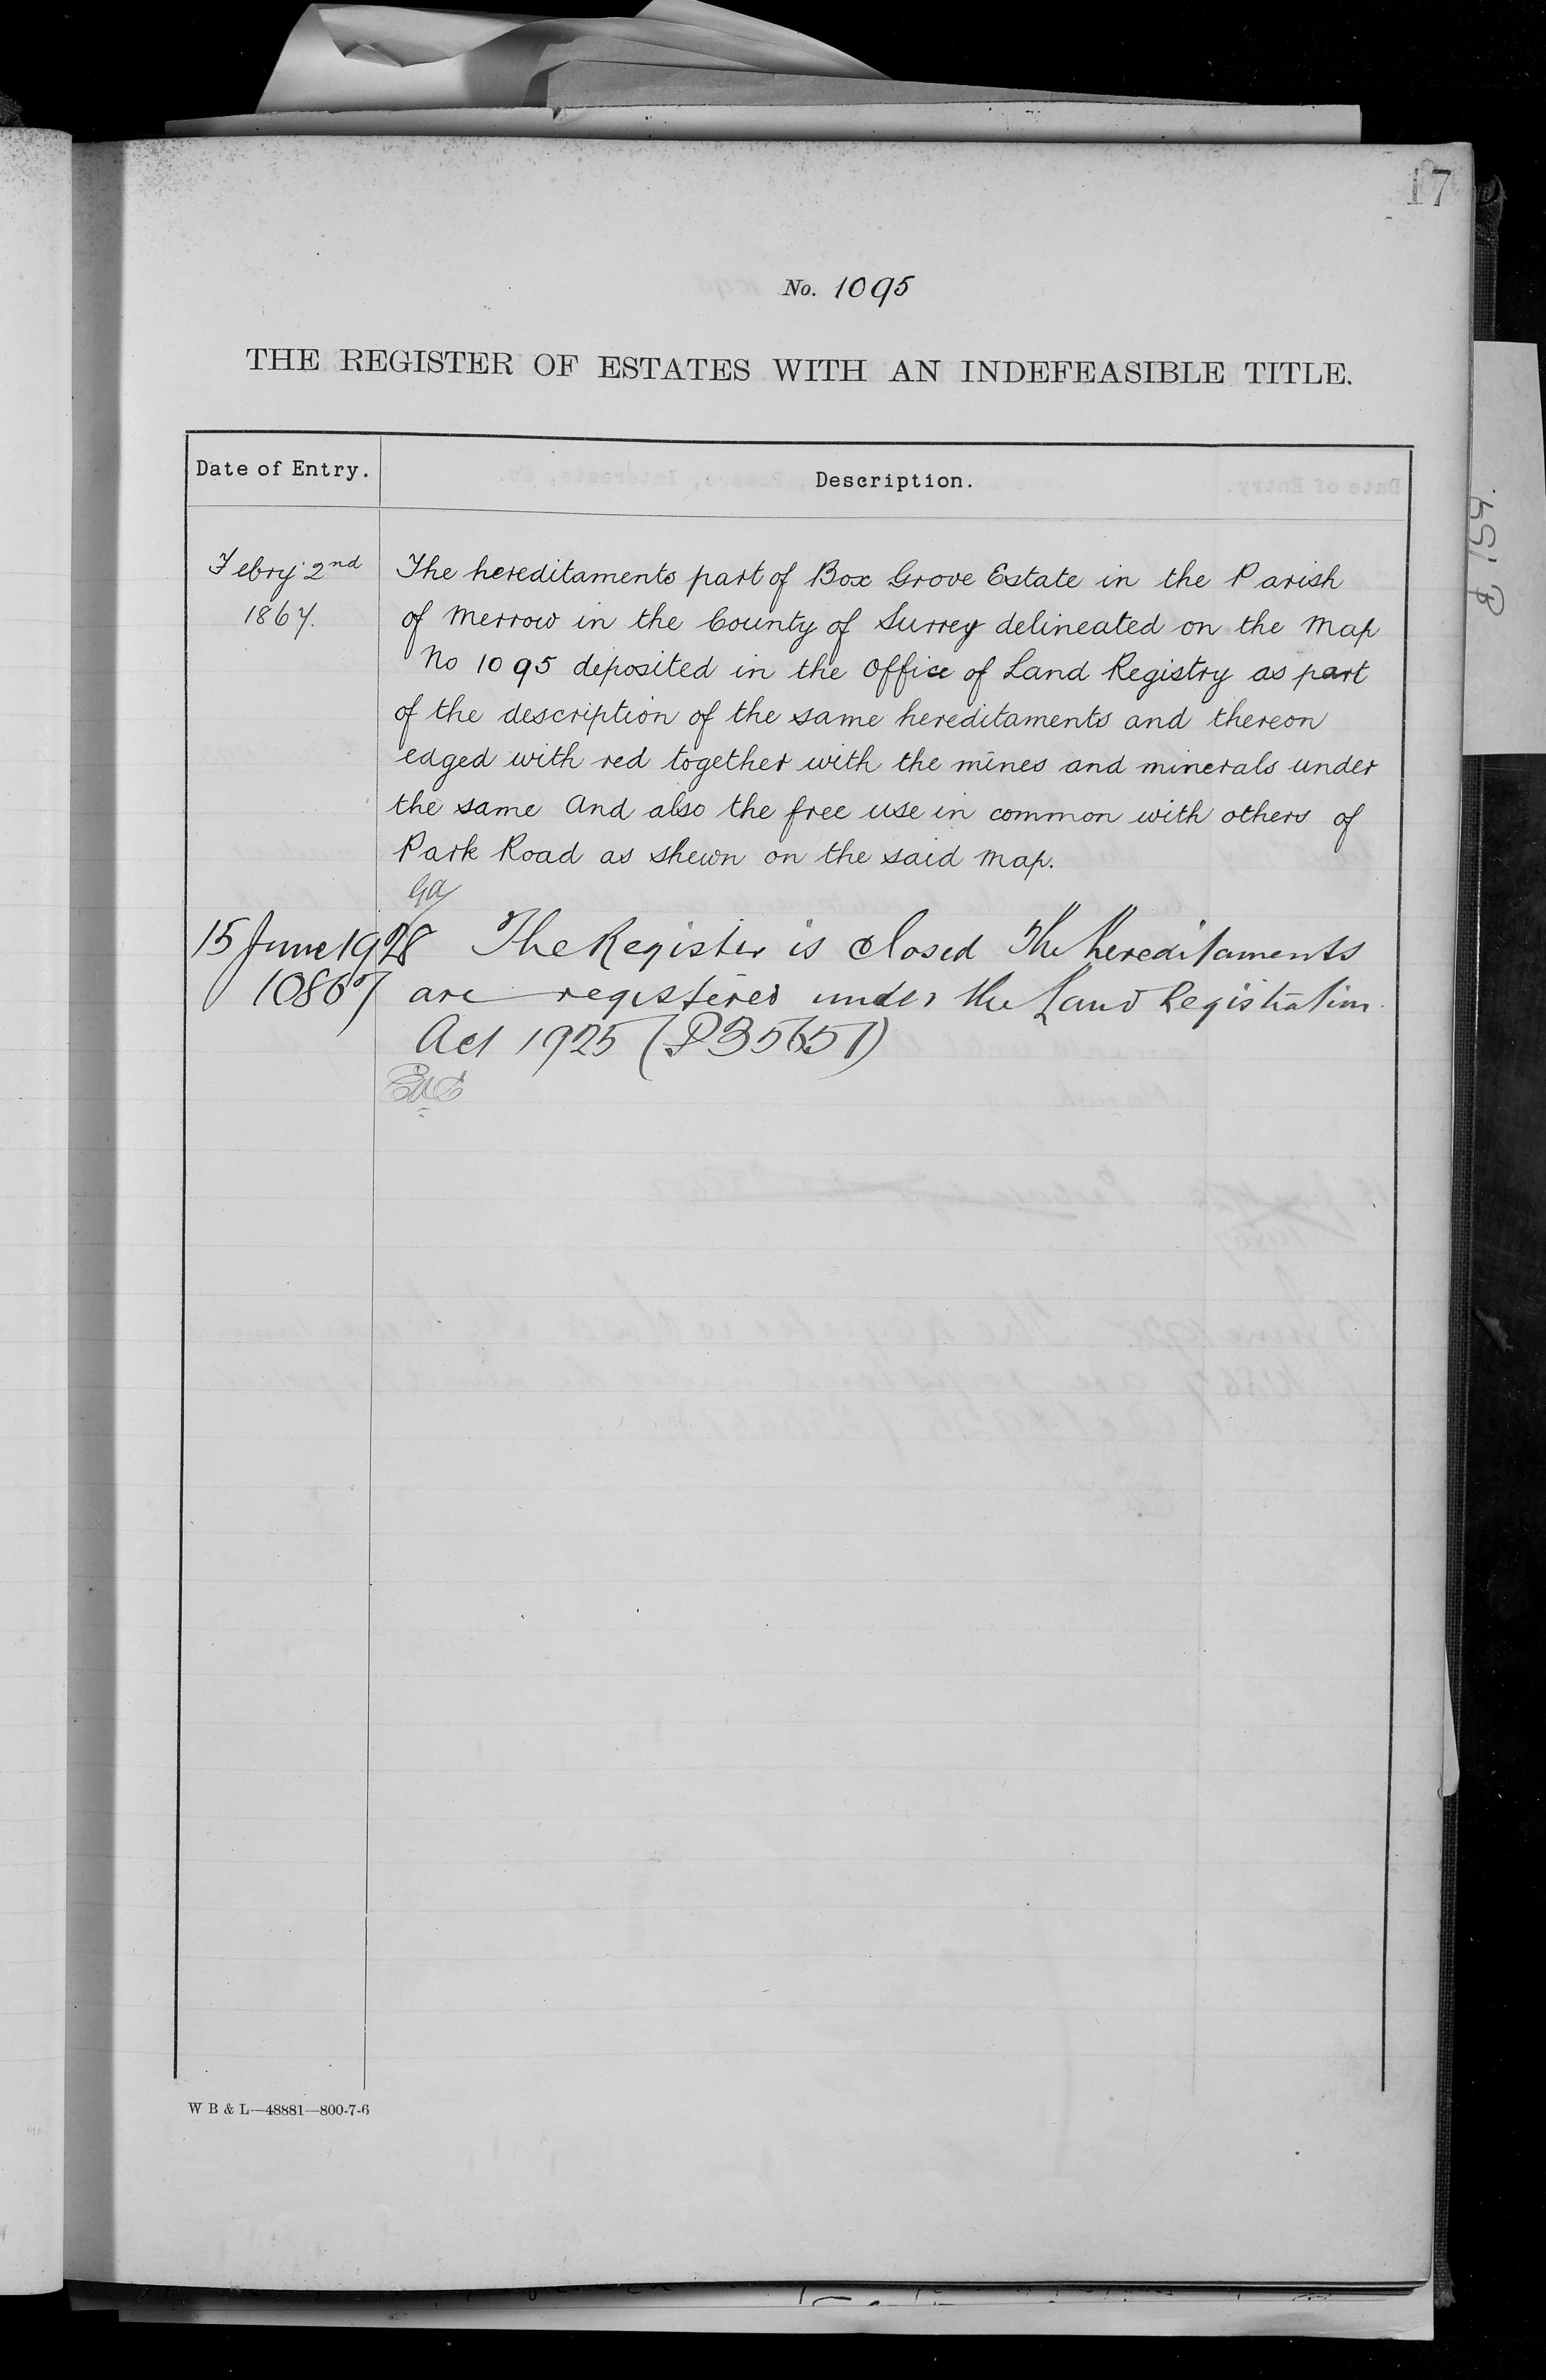 17
No. 1095
THE REGISTER OF ESTATES WITH AN INDEFEASIBLE TITLE.
Date of Entry.
Description.
Febry 2nd
1867.
The hereditaments part of Box Grove Estate in the Parish
of Merrow in the County of Surrey delineated on the Map
No 1095 deposited in the Office of Land Registry as part
of the description of the same hereditaments and thereon
edged with red together with the mines and minerals under
the same And also the free use in common with others of
Park Road as shewn on the said Map.
15 June 1928
10867
The Register is closed The hereditaments
are registered under the Land Registration
Act 1925 (P35651)
W B & L—48881—800-7-6
P 154.